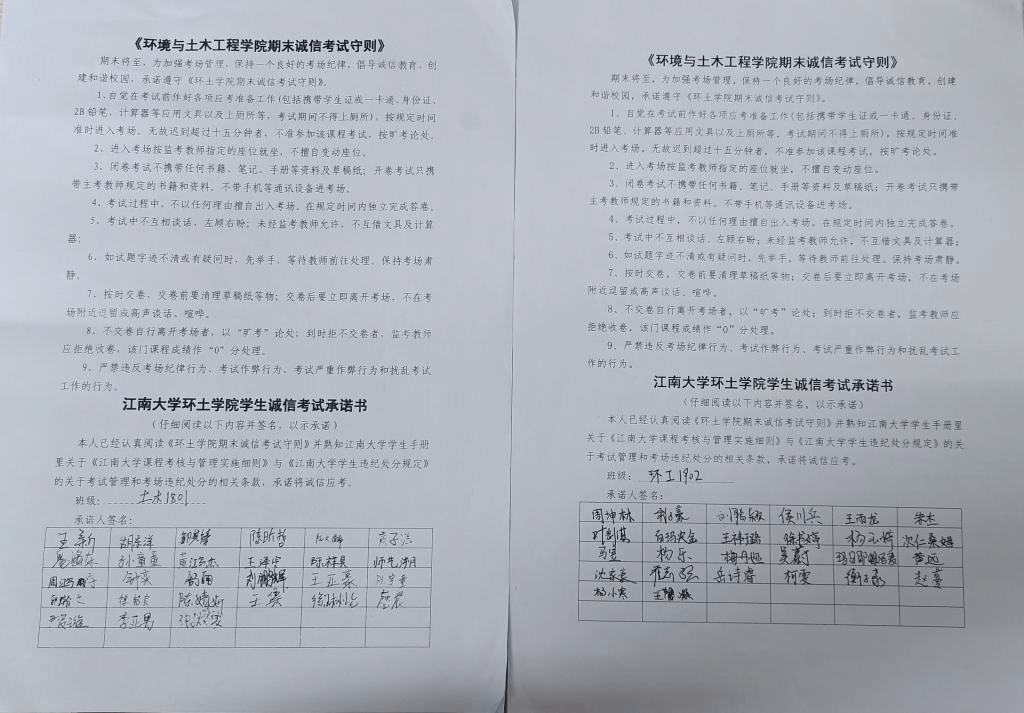 《环境与土木工程学院期末诚信考试守则》
期末将至，为加强考场管理，保持一个良好的考场纪律，倡导诚信教育，创
建和谐校园，承诺遵守《环土学院期末诚信考试守则》。
1、自觉在考试前作好各项应考准备工作(包括携带学生证或一卡通、身份证、
2B铅笔、计算器等应用文具以及上厕所等，考试期间不得上厕所)，按规定时间
准时进入考场。无故迟到超过十五分钟者，不准参加该课程考试，按旷考论处。
2、进入考场按监考教师指定的座位就坐，不擅自变动座位。
3、闭卷考试不携带任何书籍、笔记、手册等资料及草稿纸；开卷考试只携
带主考教师规定的书籍和资料，不带手机等通讯设备进考场。
4、考试过程中，不以任何理由擅自出入考场。在规定时间内独立完成答卷。
5、考试中不互相谈话、左顾右盼；未经监考教师允许，不互借文具及计算
器；
6、如试题字迹不清或有疑问时，先举手，等待教师前往处理。保持考场肃
静。
7、按时交卷，交卷前要清理草稿纸等物；交卷后要立即离开考场，不在考
场附近逗留或高声谈话、喧哗。
8、不交卷自行离开考场者，以“旷考”论处；到时拒不交卷者，监考教师
应拒绝收卷，该门课程成绩作“0”分处理。
9、严禁违反考场纪律行为、考试作弊行为、考试严重作弊行为和扰乱考试
工作的行为。
江南大学环土学院学生诚信考试承诺书
（仔细阅读以下内容并签名，以示承诺）
本人已经认真阅读《环土学院期末诚信考试守则》并熟知江南大学学生手册
里关于《江南大学课程考核与管理实施细则》与《江南大学学生违纪处分规定》
的关于考试管理和考场违纪处分的相关条款，承诺将诚信应考。
班级：土木1801
承诺人签名：
王新 胡宗洋 陈昕哲
孙童童 黄江杰 王泽宇 陈梓昊
刘鹏辉 王亚豪
陈婧妍 王奕
李正男
《环境与土木工程学院期末诚信考试守则》
期末将至，为加强考场管理，保持一个良好的考场纪律，倡导诚信教育，创建
和谐校园，承诺遵守《环土学院期末诚信考试守则》。
1、自觉在考试前作好各项应考准备工作(包括携带学生证或一卡通、身份证、
2B铅笔、计算器等应用文具以及上厕所等，考试期间不得上厕所)，按规定时间准
时进入考场。无故迟到超过十五分钟者，不准参加该课程考试，按旷考论处。
2、进入考场按监考教师指定的座位就坐，不擅自变动座位。
3、闭卷考试不携带任何书籍、笔记、手册等资料及草稿纸；开卷考试只携带
主考教师规定的书籍和资料，不带手机等通讯设备进考场。
4、考试过程中，不以任何理由擅自出入考场。在规定时间内独立完成答卷。
5、考试中不互相谈话、左顾右盼；未经监考教师允许，不互借文具及计算器；
6、如试题字迹不清或有疑问时，先举手，等待教师前往处理。保持考场肃静。
7、按时交卷，交卷前要清理草稿纸等物；交卷后要立即离开考场，不在考场
附近逗留或高声谈话、喧哗。
8、不交卷自行离开考场者，以“旷考”论处；到时拒不交卷者，监考教师应
拒绝收卷，该门课程成绩作“0”分处理。
9、严禁违反考场纪律行为、考试作弊行为、考试严重作弊行为和扰乱考试工
作的行为。
江南大学环土学院学生诚信考试承诺书
（仔细阅读以下内容并签名，以示承诺）
本人已经认真阅读《环土学院期末诚信考试守则》并熟知江南大学学生手册里
关于《江南大学课程考核与管理实施细则》与《江南大学学生违纪处分规定》的关
于考试管理和考场违纪处分的相关条款，承诺将诚信应考。
班级：环工1902
承诺人签名：
周坤林 刘鹏敏 侯川兵 王雨龙 朱杰
白玛央金 次仁桑姆
杨乐 吴蔚 黄远
岳诗睿 柯雯 赵喜
杨小寒